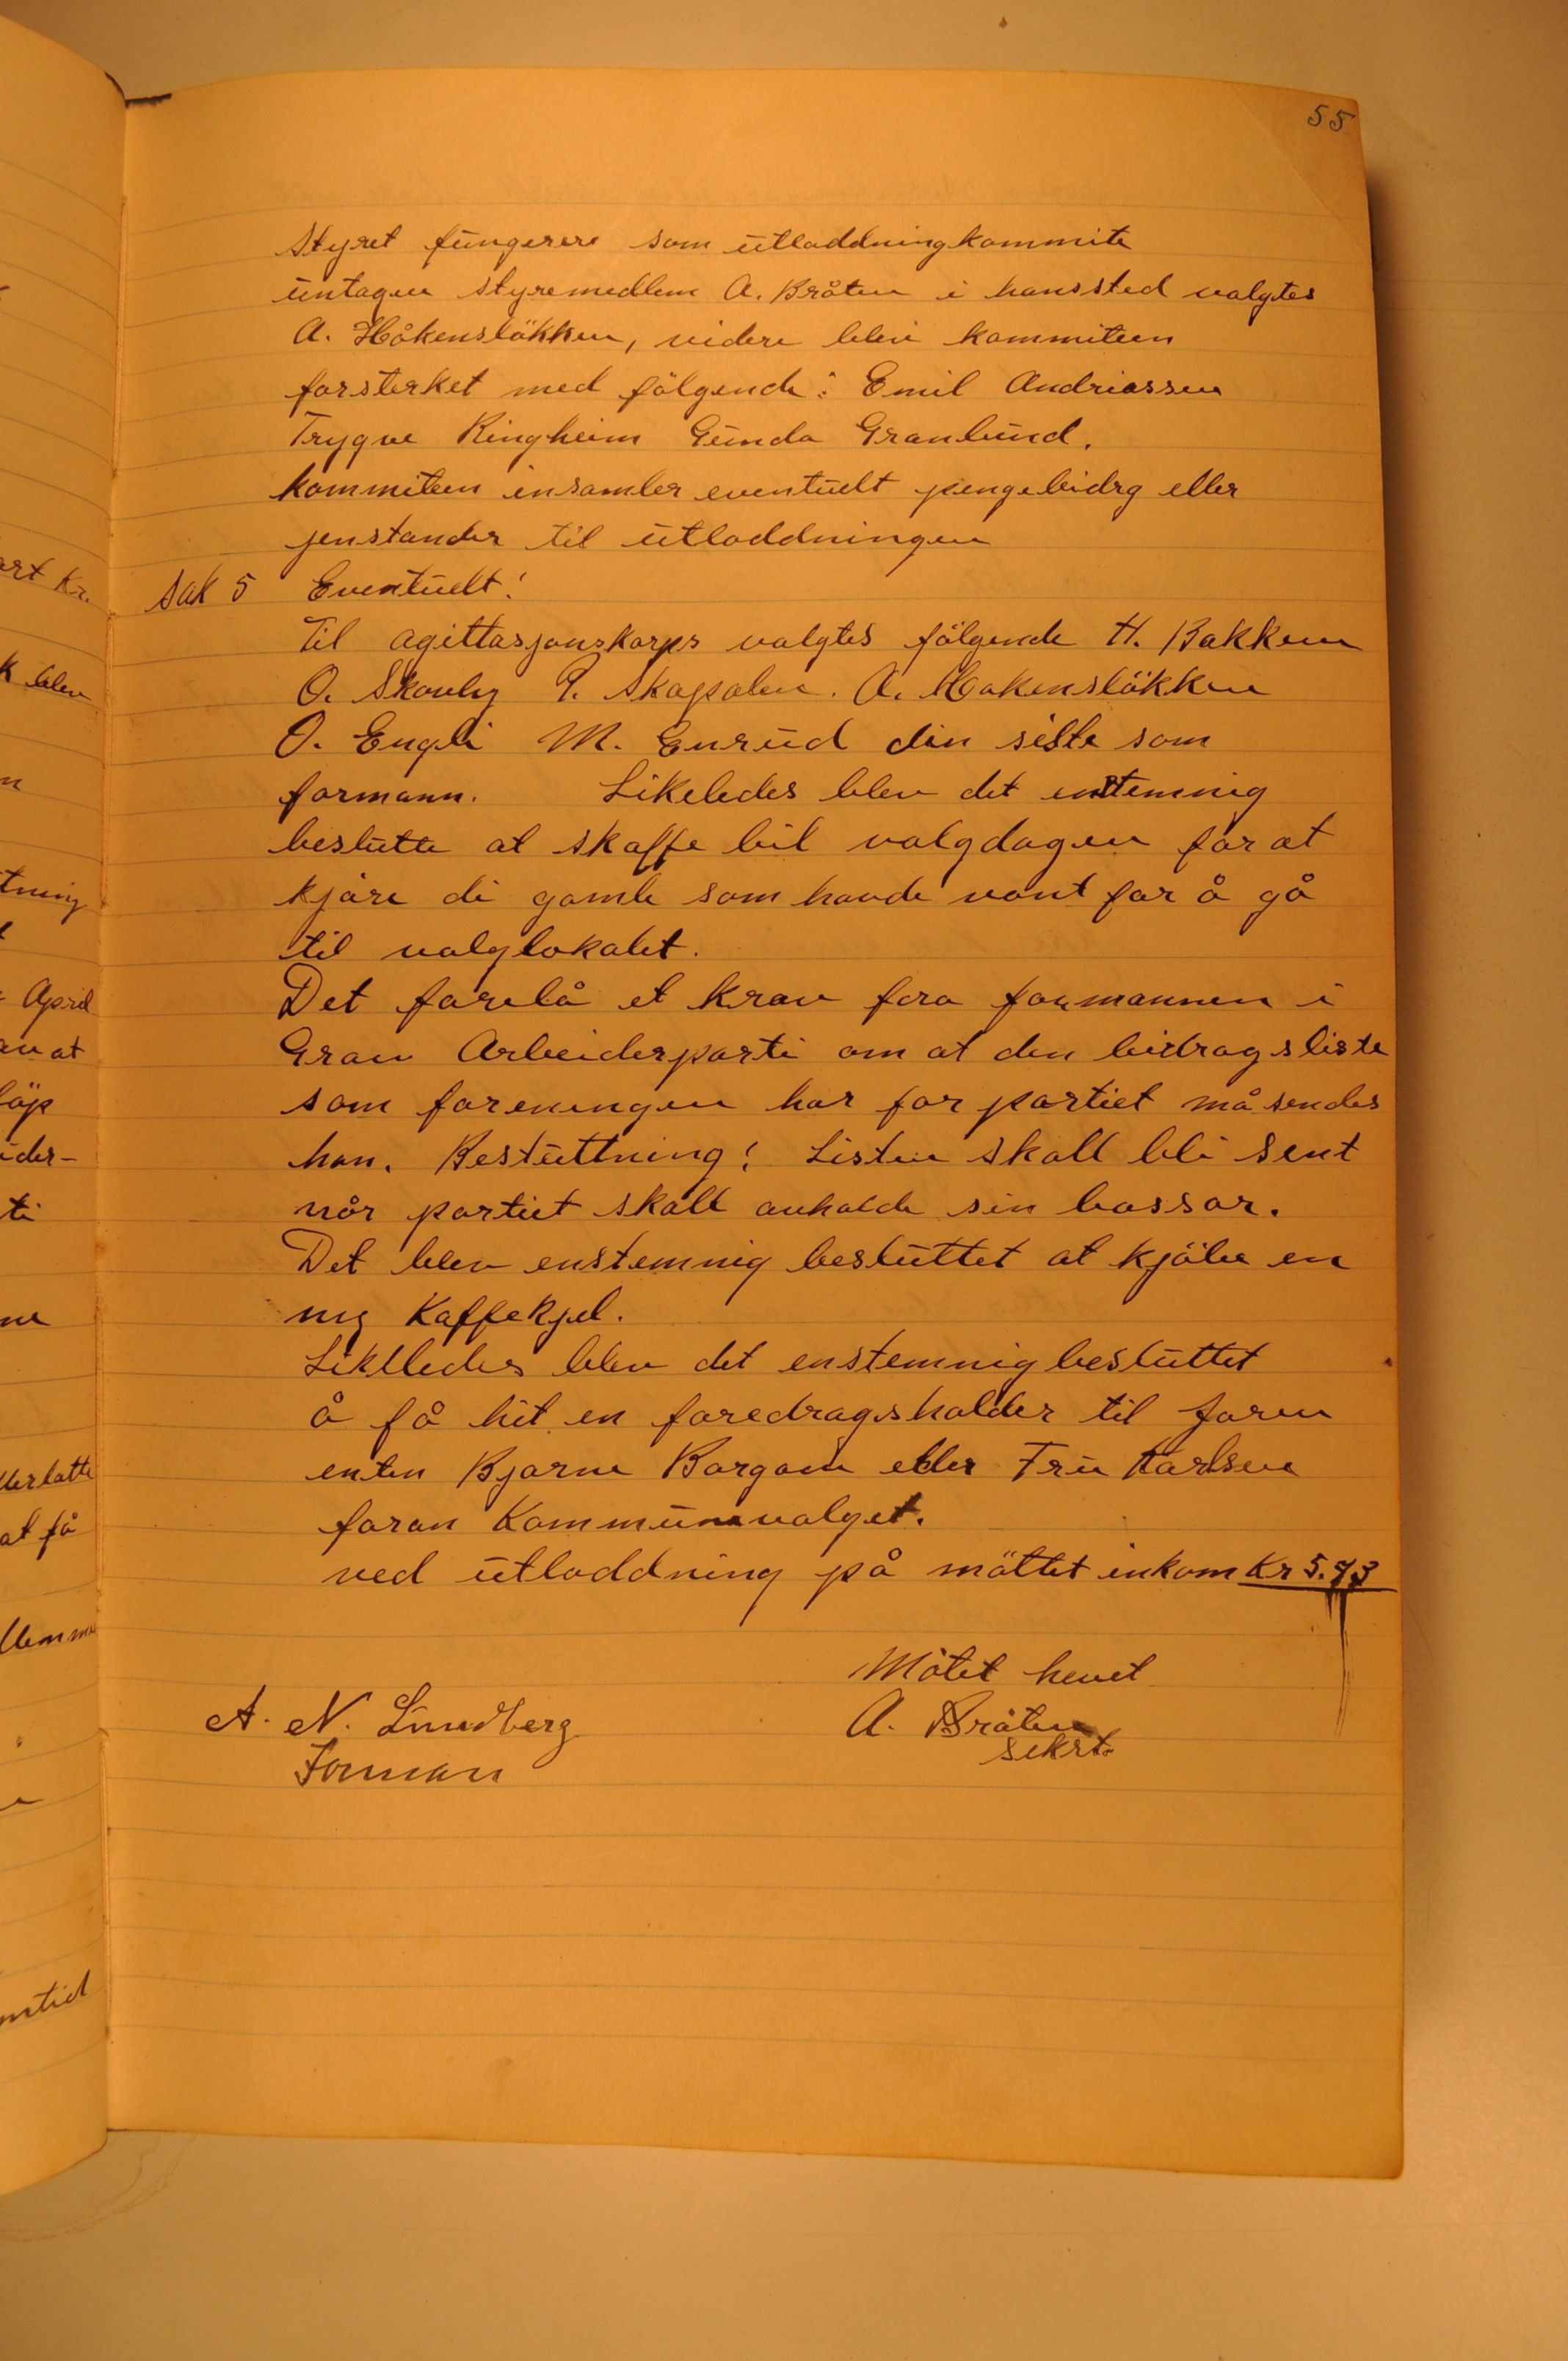 55
Styret fungerere som utloddningkommite
untagen styremedlem A. Bråten i hanssted valgtes
A. Håkensløkken, videre blev kommiteen
forsterket med følgende: Emil Andriassen
Trygve Ringheim Gunda Granlund.
kommiteen insamler eventuelt pengebidrg eller
jenstander til utloddningen
Sak 5 Eventuelt:
Til agittasjonskorps valgtes følgende H. Bakken
O. Skouly P. Skapalen. A. Hakensløkken
O. Engli M. Enrud din siste som
formann. Likeledes blev det enstemnig
beslutte at skaffe bil valgdagen for at
kjøre di gamle som havde vont for å gå
til valglokalet.
Det forelå et krav fra formannen i
Gran Arbeiderparti om at den bidragsliste
som foreningen har for partiet må sendes
han. Beslüttning: Listen skall bli sent
når partiet skall anholde sin bassar.
Det blev enstemnig besluttet at kjøbe en
ny Kaffekjel.
Likeledes blev det enstemnig besluttet
å få hit en foredragsholder til Jaren
enten Bjarne Borgan eller Fru Karlsen
foran Kommunevalget.
ved utloddning på møttet inkom Kr 5.73
Møtet hevet
A. N. Lundberg A. Bråten
Forman sekrt.
art Kr.
k blev
n
tning
April
av at
løp
ider-
ti
ne
llerlatte
at få
llemme
mtid